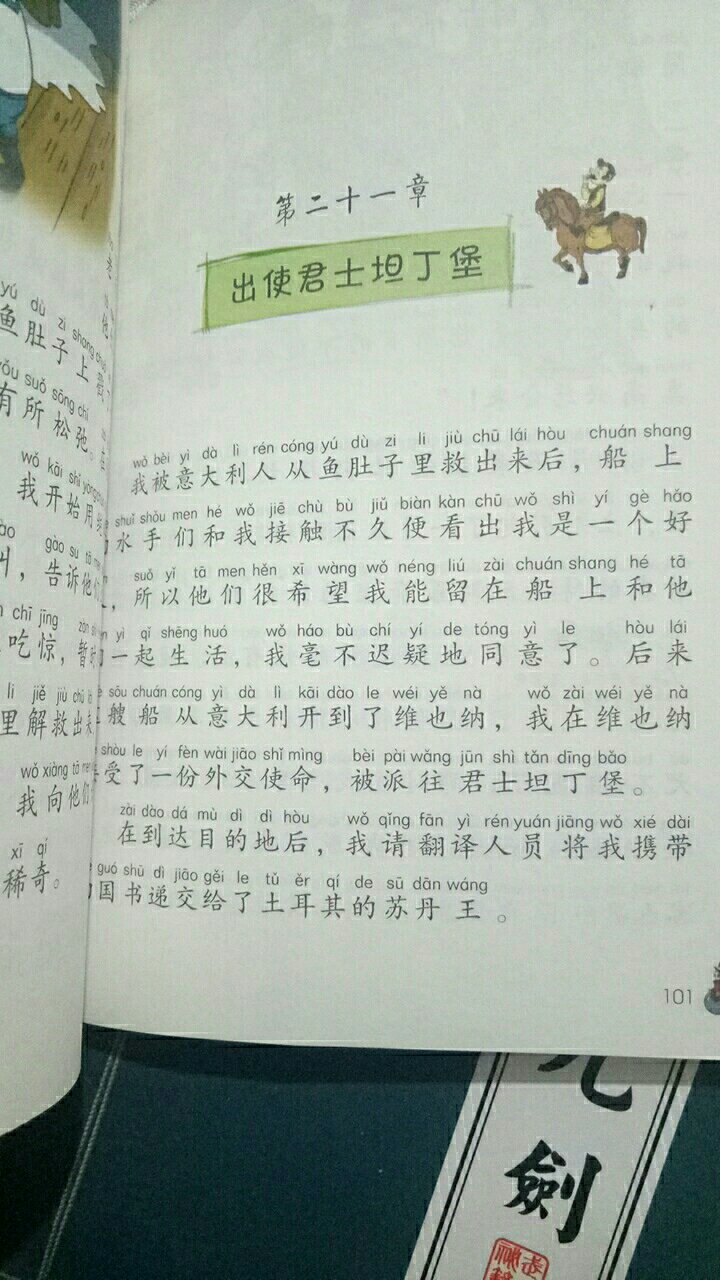 yú dù zi shang
鱼肚子上
suǒ sōng chí
有所松弛。在
wǒ kāi shǐ yòng
我开始用
gào su tā men
叫，告诉他们
chī jīng
吃惊，暂
li jiě jiù chū
里解救出来
wǒ xiàng tā men
我向他们
xī qí
稀奇。
第二十一章
出使君士坦丁堡
wǒ bèi yì dà lì rén cóng yú dù zi li jiù chū lái hòu chuán shang
我被意大利人从鱼肚子里救出来后，船上
shuǐ shǒu men hé wǒ jiē chù bù jiǔ biàn kàn chū wǒ shì yí gè hǎo
水手们和我接触不久便看出我是一个好
suǒ yǐ tā men hěn xī wàng wǒ néng liú zài chuán shang hé tā
，所以他们很希望我能留在船上和他
yì qǐ shēng huó wǒ háo bù chí yí de tóng yì le hòu lái
一起生活，我毫不迟疑地同意了。后来
sōu chuán cóng yì dà lì kāi dào le wéi yě nà wǒ zài wéi yě nà
艘船从意大利开到了维也纳，我在维也纳
shòu le yí fèn wài jiāo shǐ mìng bèi pài wǎng jūn shì tǎn dīng bǎo
受了一份外交使命，被派往君士坦丁堡。
zài dào dá mù dì dì hòu wǒ qǐng fān yì rén yuán jiāng wǒ xié dài
在到达目的地后，我请翻译人员将我携带
guó shū dì jiāo gěi le tǔ ěr qí de sū dān wáng
国书递交给了土耳其的苏丹王。
101
九
劍